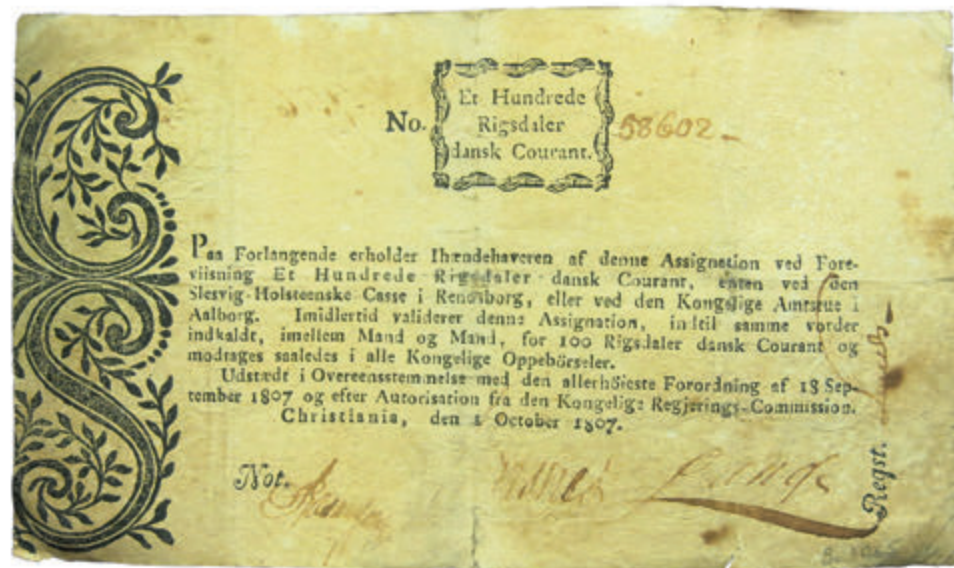 Et Hundrede
Rigsdaler
dansk Courant.
No. 58602
Paa Forlangende erholder Ihændehaveren af denne Assignation ved Fore-
viisning Et Hundrede Rigsdaler dansk Courant, enten ved den
Slesvig-Holsteenske Casse i Rendsborg, eller ved den Kongelige Amtstue i
Aalborg. Imidlertid validerer denne Assignation, indtil samme vorder
indkaldt, imellem Mand og Mand, for 100 Rigsdaler dansk Courant og
modtages saaledes i alle Kongelige Oppebörseler.
Udstædt i Overeensstemmelse med den allerhöieste Forordning af 18 Sep-
tember 1807 og efter Autorisation fra den Kongelige Regjerings-Commission.
Christiania, den 1 October 1807.
Not.
Regst.